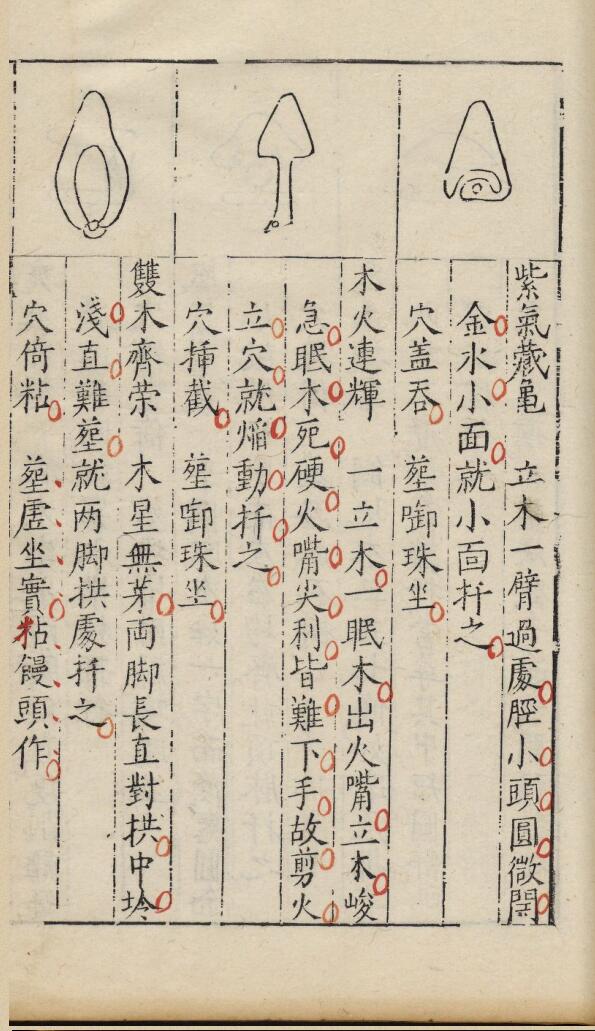 紫氣藏龜　立木一臂過處脛小頭圓微開
金水小面就小面扦之
穴盖吞　塟啣珠坐
木火連輝　一立木一眠木出火嘴立木峻
急眠木死硬火嘴尖利皆難下手故剪火
立穴就熖動扦之
穴挿截　塟啣珠坐
雙木齊荣　木星無芽両脚長直對拱中坽
淺直難塟就两脚拱處扦之
穴倚粘　塟虛坐實粘饅頭作